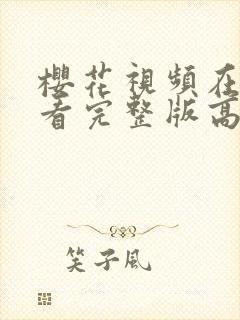 櫻花視頻在
看完整版高
笑子風